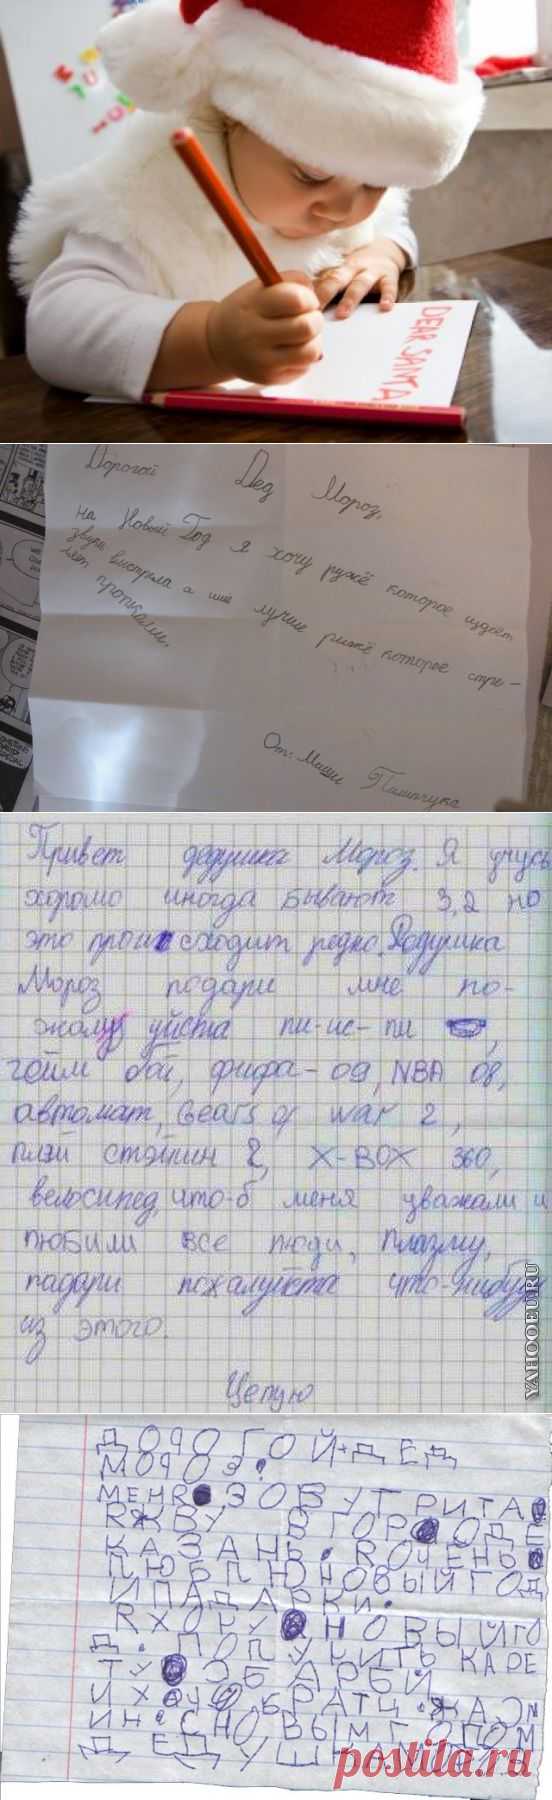 DEAR SANTA
Дорогой Дед Мороз,
на Новый Год я хочу ружё которое издаёт
звуки выстрела а ищё лучше ружё которое стре-
ляет пропками.
От: Маши Пилипчука
Привет дедушка Мороз. Я учусь
хорошо иногда бывают 3,2 но
это происходит редко. Дедушка
Мороз подари мне по-
жалуйста пи-ис-пи,
гейм бой, фифа-09, NBA 08,
автомат, Gears of war 2,
плэй стэйшин 2, X-BOX 360,
велосипед, что-б меня уважали и
любили все люди, плазму,
падари пожалуйста что-нибудь
из этого.
Целую
YAHOOEU.RU
ДОРОГОЙ ДЕД
МОРОЗ!
МЕНЯ ЗОВУТ РИТА
ЯЖВУ В ГОРОДЕ
КАЗАНЬ. Я ОЧЕНЬ
ЛЮБЛЮ НОВЫЙ ГОД
И ПАДАРКИ.
Я ХОЧУ Н НОВЫЙ ГО
Д. ПОЛУЧИТЬ КАРЕ
ТУ БАРБИ
И ХОЧУ БРАТЦ
С НОВЫМ ГОДОМ
ДЕДУШКА МОРОЗ
postila.ru